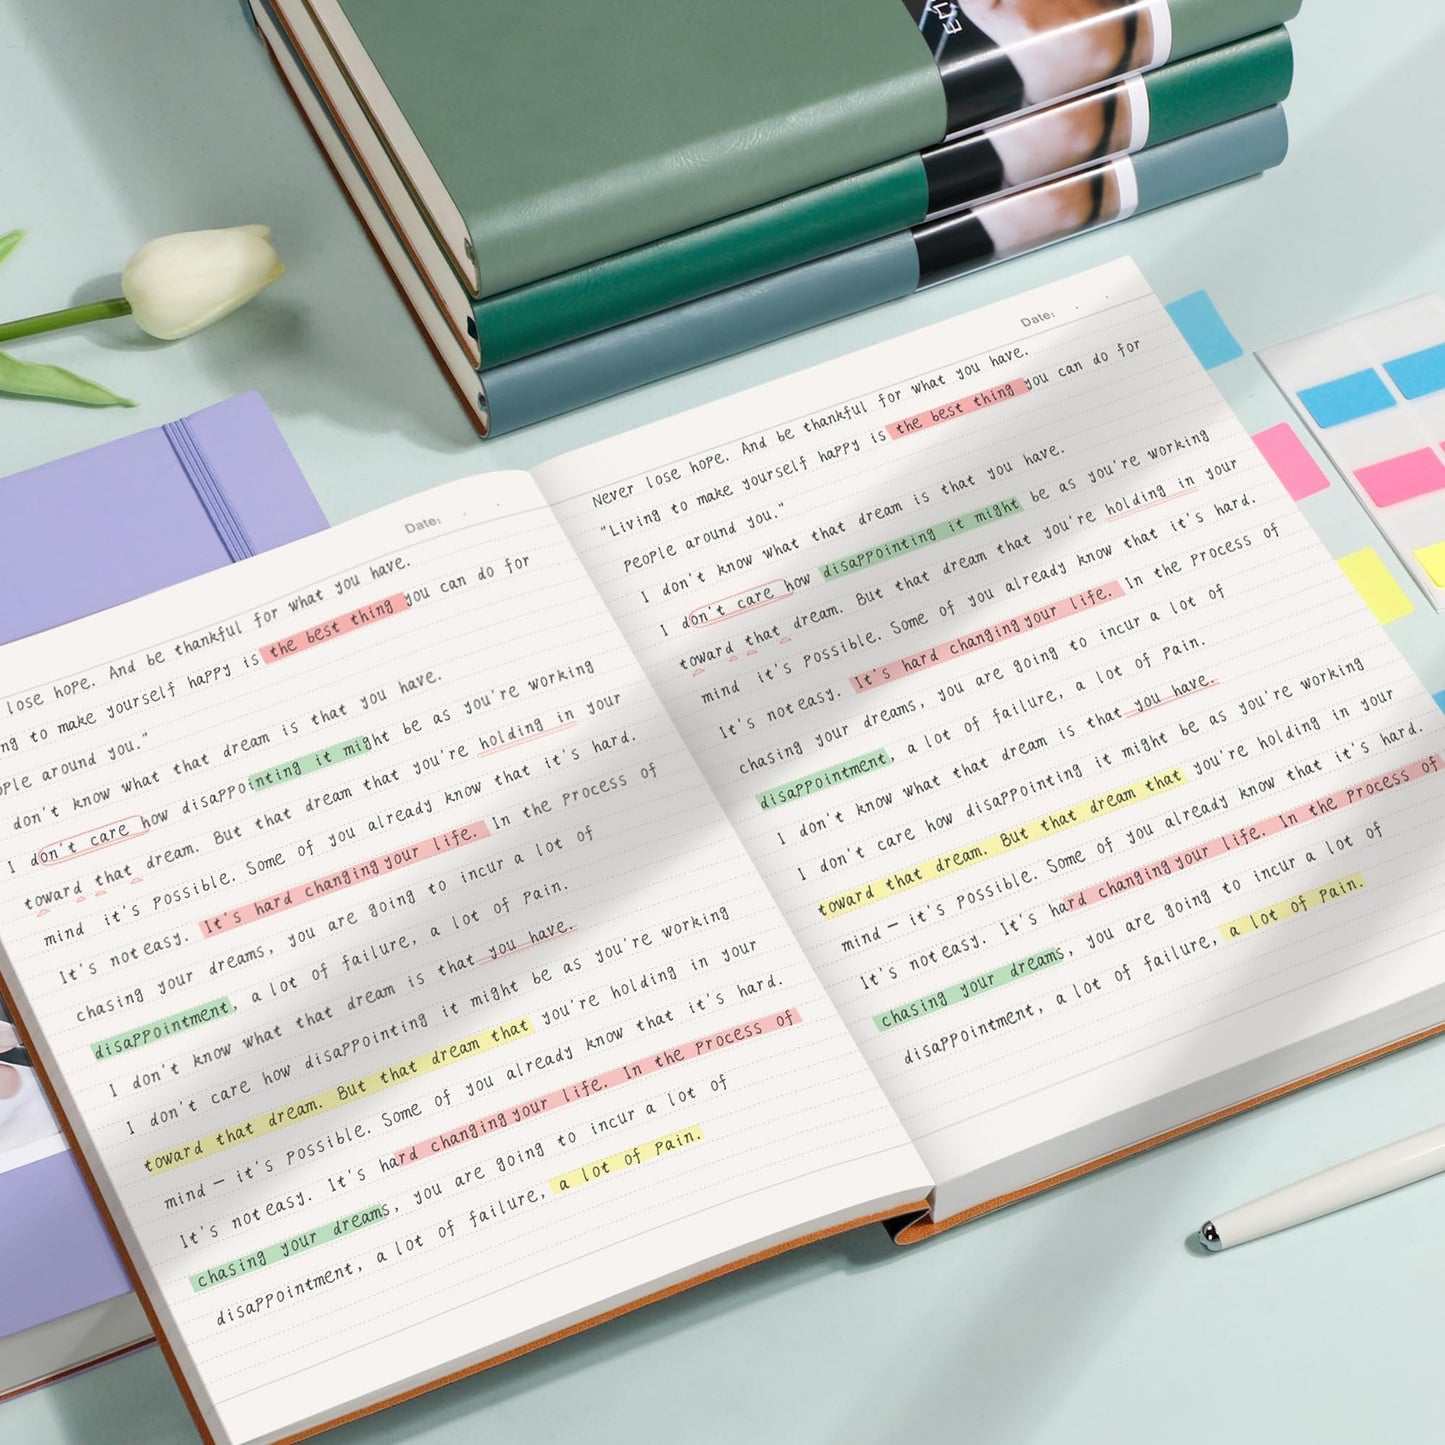 Date: . .
lose hope. And be thankful for what you have.
ng to make yourself happy is the best thing you can do for
ople around you."
don't know what that dream is that you have.
I don't care how disappointing it might be as you're working
toward that dream. But that dream that you're holding in your
mind it's possible. Some of you already know that it's hard.
It's not easy. It's hard changing your life. In the process of
chasing your dreams, you are going to incur a lot of
disappointment, a lot of failure, a lot of pain.
I don't know what that dream is that you have.
I don't care how disappointing it might be as you're working
toward that dream. But that dream that you're holding in your
mind — it's possible. Some of you already know that it's hard.
It's not easy. It's hard changing your life. In the process of
chasing your dreams, you are going to incur a lot of
disappointment, a lot of failure, a lot of pain.
Date: . .
Never lose hope. And be thankful for what you have.
"Living to make yourself happy is the best thing you can do for
people around you."
I don't know what that dream is that you have.
I don't care how disappointing it might be as you're working
toward that dream. But that dream that you're holding in your
mind it's possible. Some of you already know that it's hard.
It's not easy. It's hard changing your life. In the process of
chasing your dreams, you are going to incur a lot of
disappointment, a lot of failure, a lot of pain.
I don't know what that dream is that you have.
I don't care how disappointing it might be as you're working
toward that dream. But that dream that you're holding in your
mind — it's possible. Some of you already know that it's hard.
It's not easy. It's hard changing your life. In the process of
chasing your dreams, you are going to incur a lot of
disappointment, a lot of failure, a lot of pain.